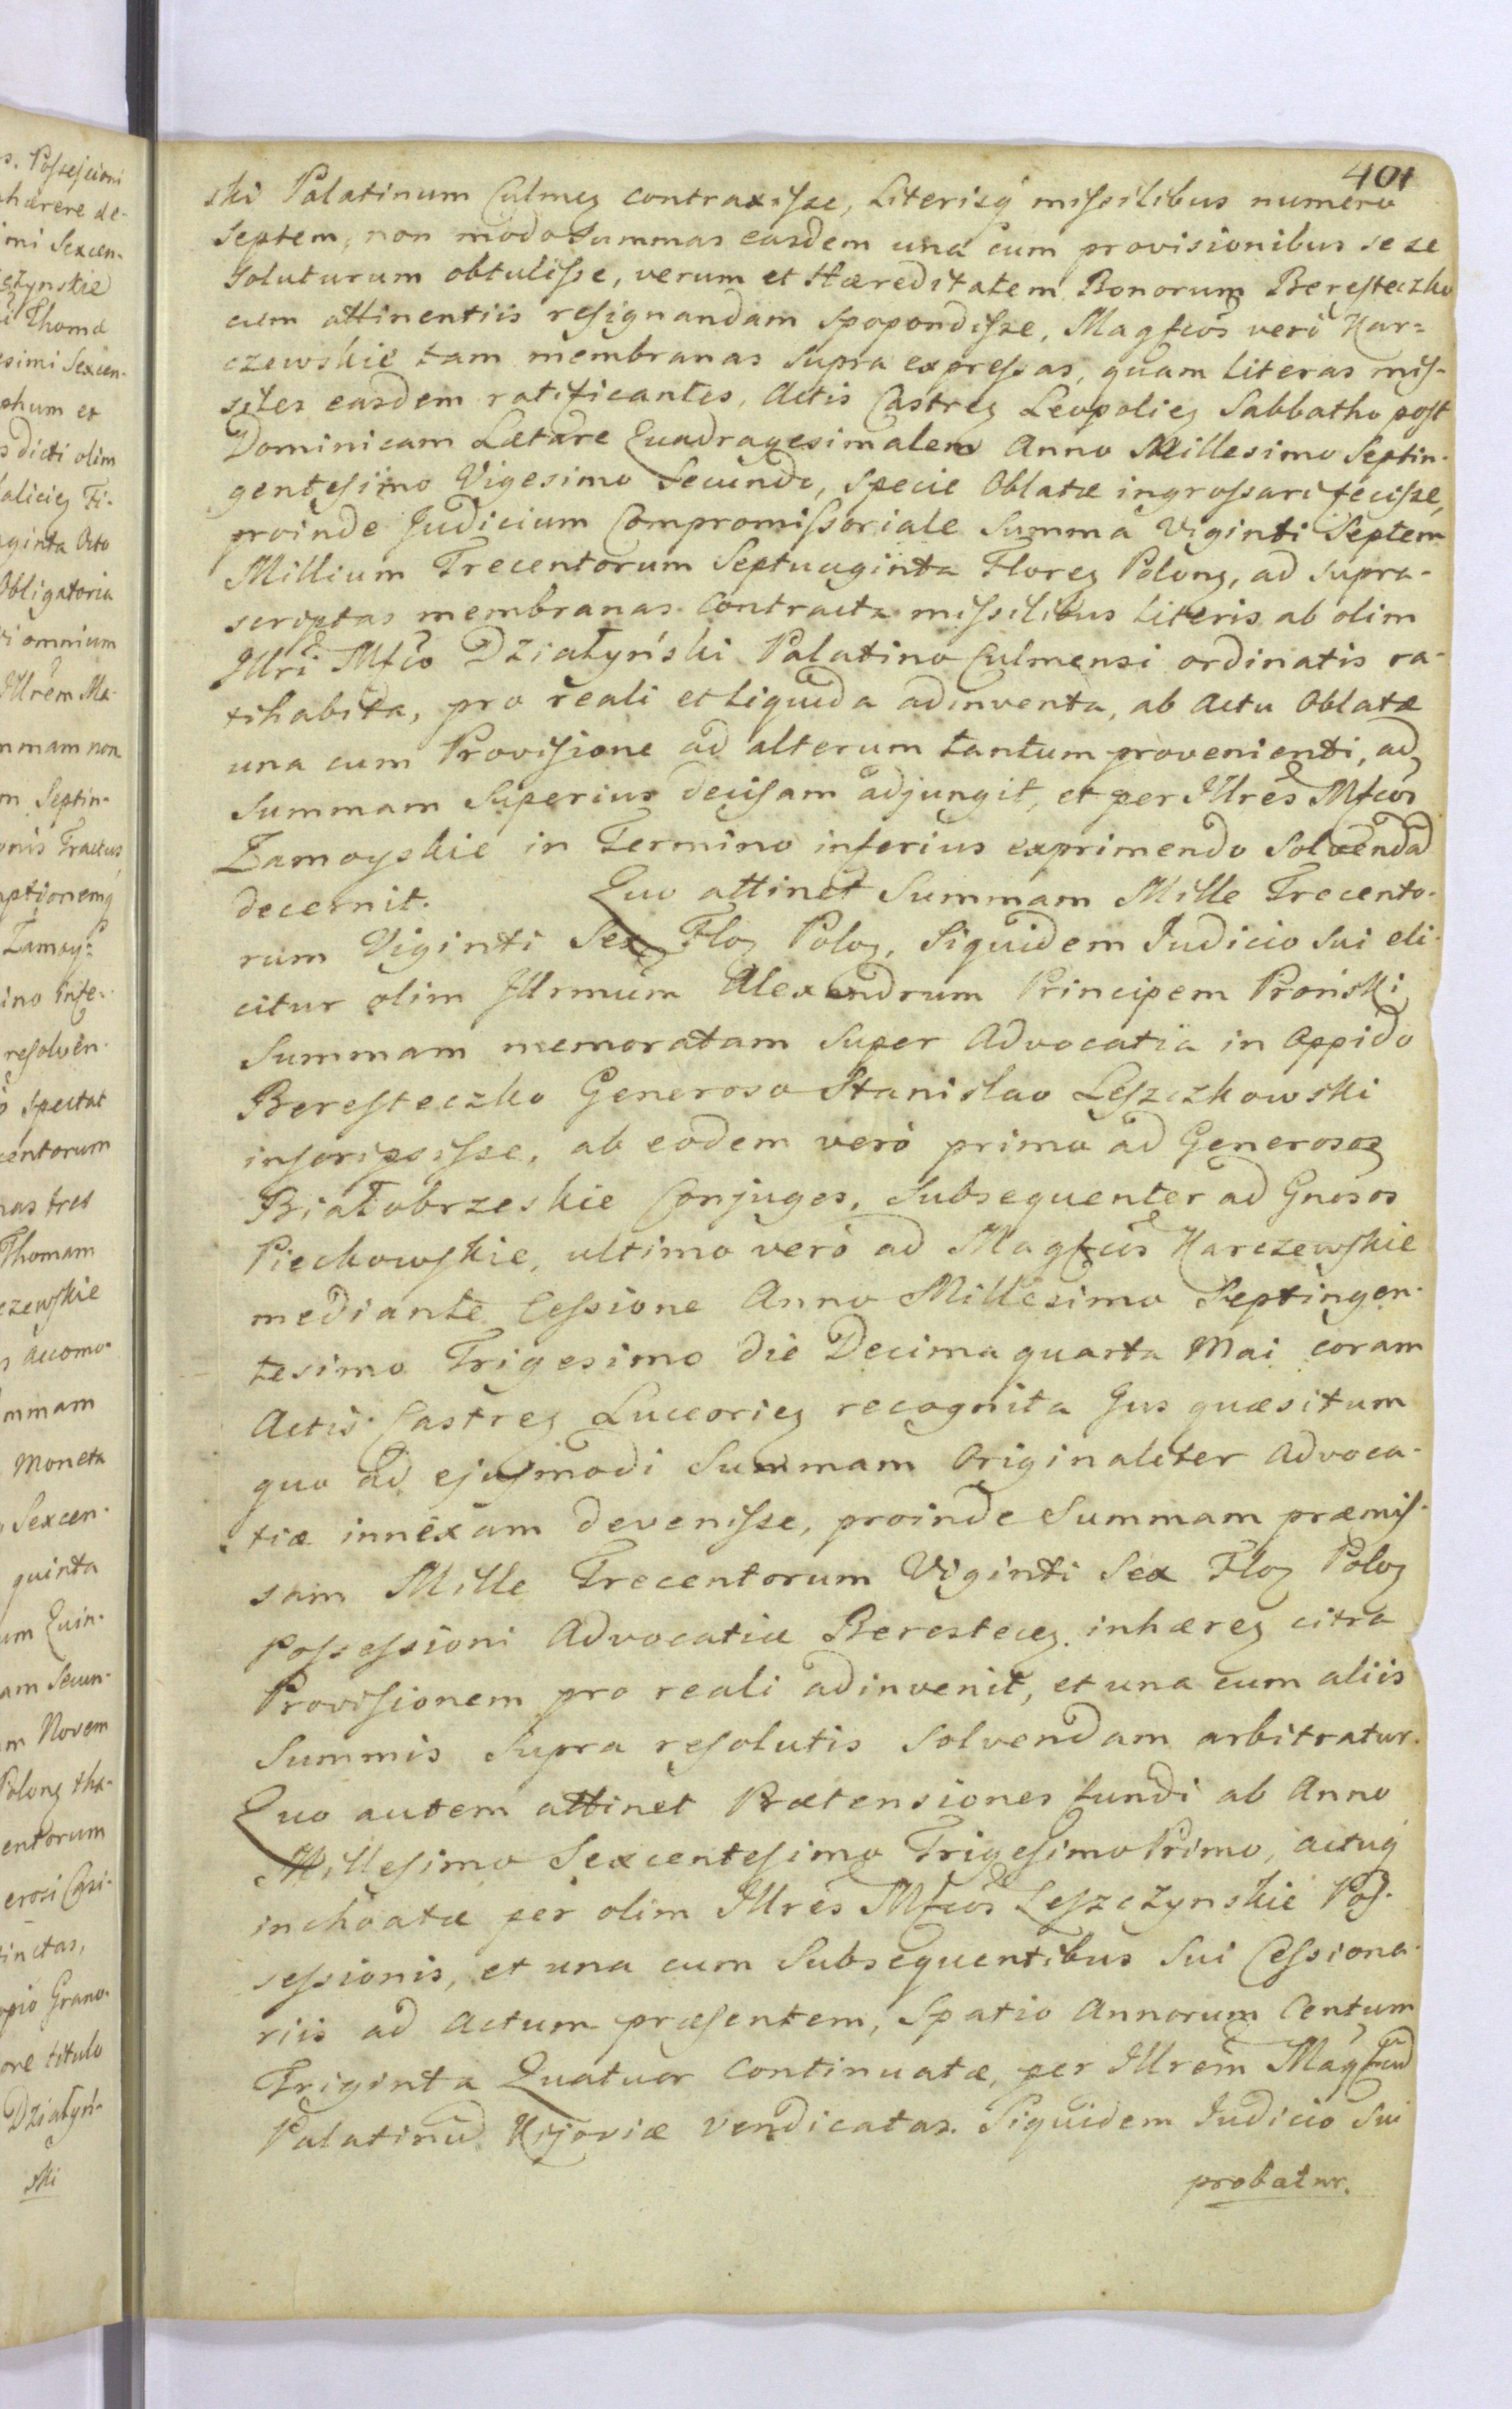 401
ski Palatinum Culmeꝫ contraxisse, Literisq́ missilibus numero
septem, non modo Summas easdem una cum provisionibus sese
soluturum obtulisse, verum et Hæreditatem Bonorum Beresteczko
cum attinentiis resignandam spopondisse, Magfcos verò Kar=
czewskie tam membranas supra expressas, quam literas mis-
siles easdem ratificantes, Actis Castreꝫ Leopolieꝫ Sabbatho post
Dominicam Lætare Quadragesimalem Anno Millesimo Septin-
gentesimo Vigesimo Secundo, specie Oblatæ ingrossari fecisse,
proinde Judicium Compromissoriale Summa Viginti Septem
Millium Trecentorum Septuaginta Floreꝫ Poloꝫ, ad supra-
scriptas membranas contracta missilibus literis ab olim
Illri Mfco Działyński Palatino Culmensi ordinatis ra-
tihabita, pro reali et liquida adinventa, ab Actu Oblatæ
una cum Provisione ad alterum tantum provenienti, ad
Summam superius decisam adjungit, et per Illres Mfcos
Zamoyskie in Termino inferius exprimendo solvenda
decernit. Quo attinet Summam Mille Trecento-
rum Viginti Sex Floꝫ Poloꝫ, Siquidem Iudicio sui eli-
citur olim Illrmum Alexandrum Principem Proński
Summam memoratam super Advocatia in Oppido
Beresteczko Generoso Stanislao Leszczkowski
inscripsisse, ab eodem verò primo ad Generosos
Białobrzeskie Conjuges, subsequenter ad Gnosos
Pieckowskie, ultimo verò ad Magfcos Karczewskie
mediante Cessione Anno Millesimo Septingen-
tesimo Trigesimo die Decima quarta Mai coram
Actis Castreꝫ Luceorieꝫ recognita Jus quæsitum
quo ad ejusmodi Summam Originaliter Advoca-
tiæ innexam devenisse, proinde Summam præmis-
sam Mille Trecentorum Viginti Sex Floꝫ Poloꝫ
Possessioni Advocatiæ Beresteceꝫ inhæreꝫ citra
Provisionem pro reali adinvenit, et una cum aliis
Summis supra resolutis solvendam arbitratur.
Quo autem attinet Prætensiones fundi ab Anno
Millesimo Sexcentesimo Trigesimo Primo, actuq́
inchoatæ per olim Illres Mfcos Leszczynskie Pos-
sessionis, et una cum Subsequentibus sui Cessiona-
riis ad Actum præsentem, Spatio Annorum Centum
Triginta Quatuor continuatæ, per Illrem Magfcum
Palatinum Kijoviæ vendicatas. Siquidem Iudicio sui
probatur.